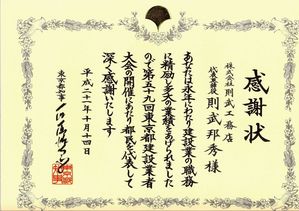 感謝状
株式会社 則武工務店
代表取締役 則武邦秀様
あなたは永年にわたり建設業の職務
に精励し多大の業績をあげられました
ので第五十九回東京都建設業者
大会の開催にあたり都民を代表して
深く感謝いたします
平成二十一年十月十四日
東京都知事